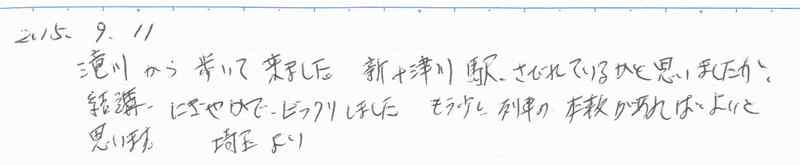 2015. 9. 11
滝川から歩いて来ました 新十津川駅、さびれているかと思いましたが、
結講、にぎやかで、ビックリしました もう少し列車の本数があればよいと
思います 埼玉より